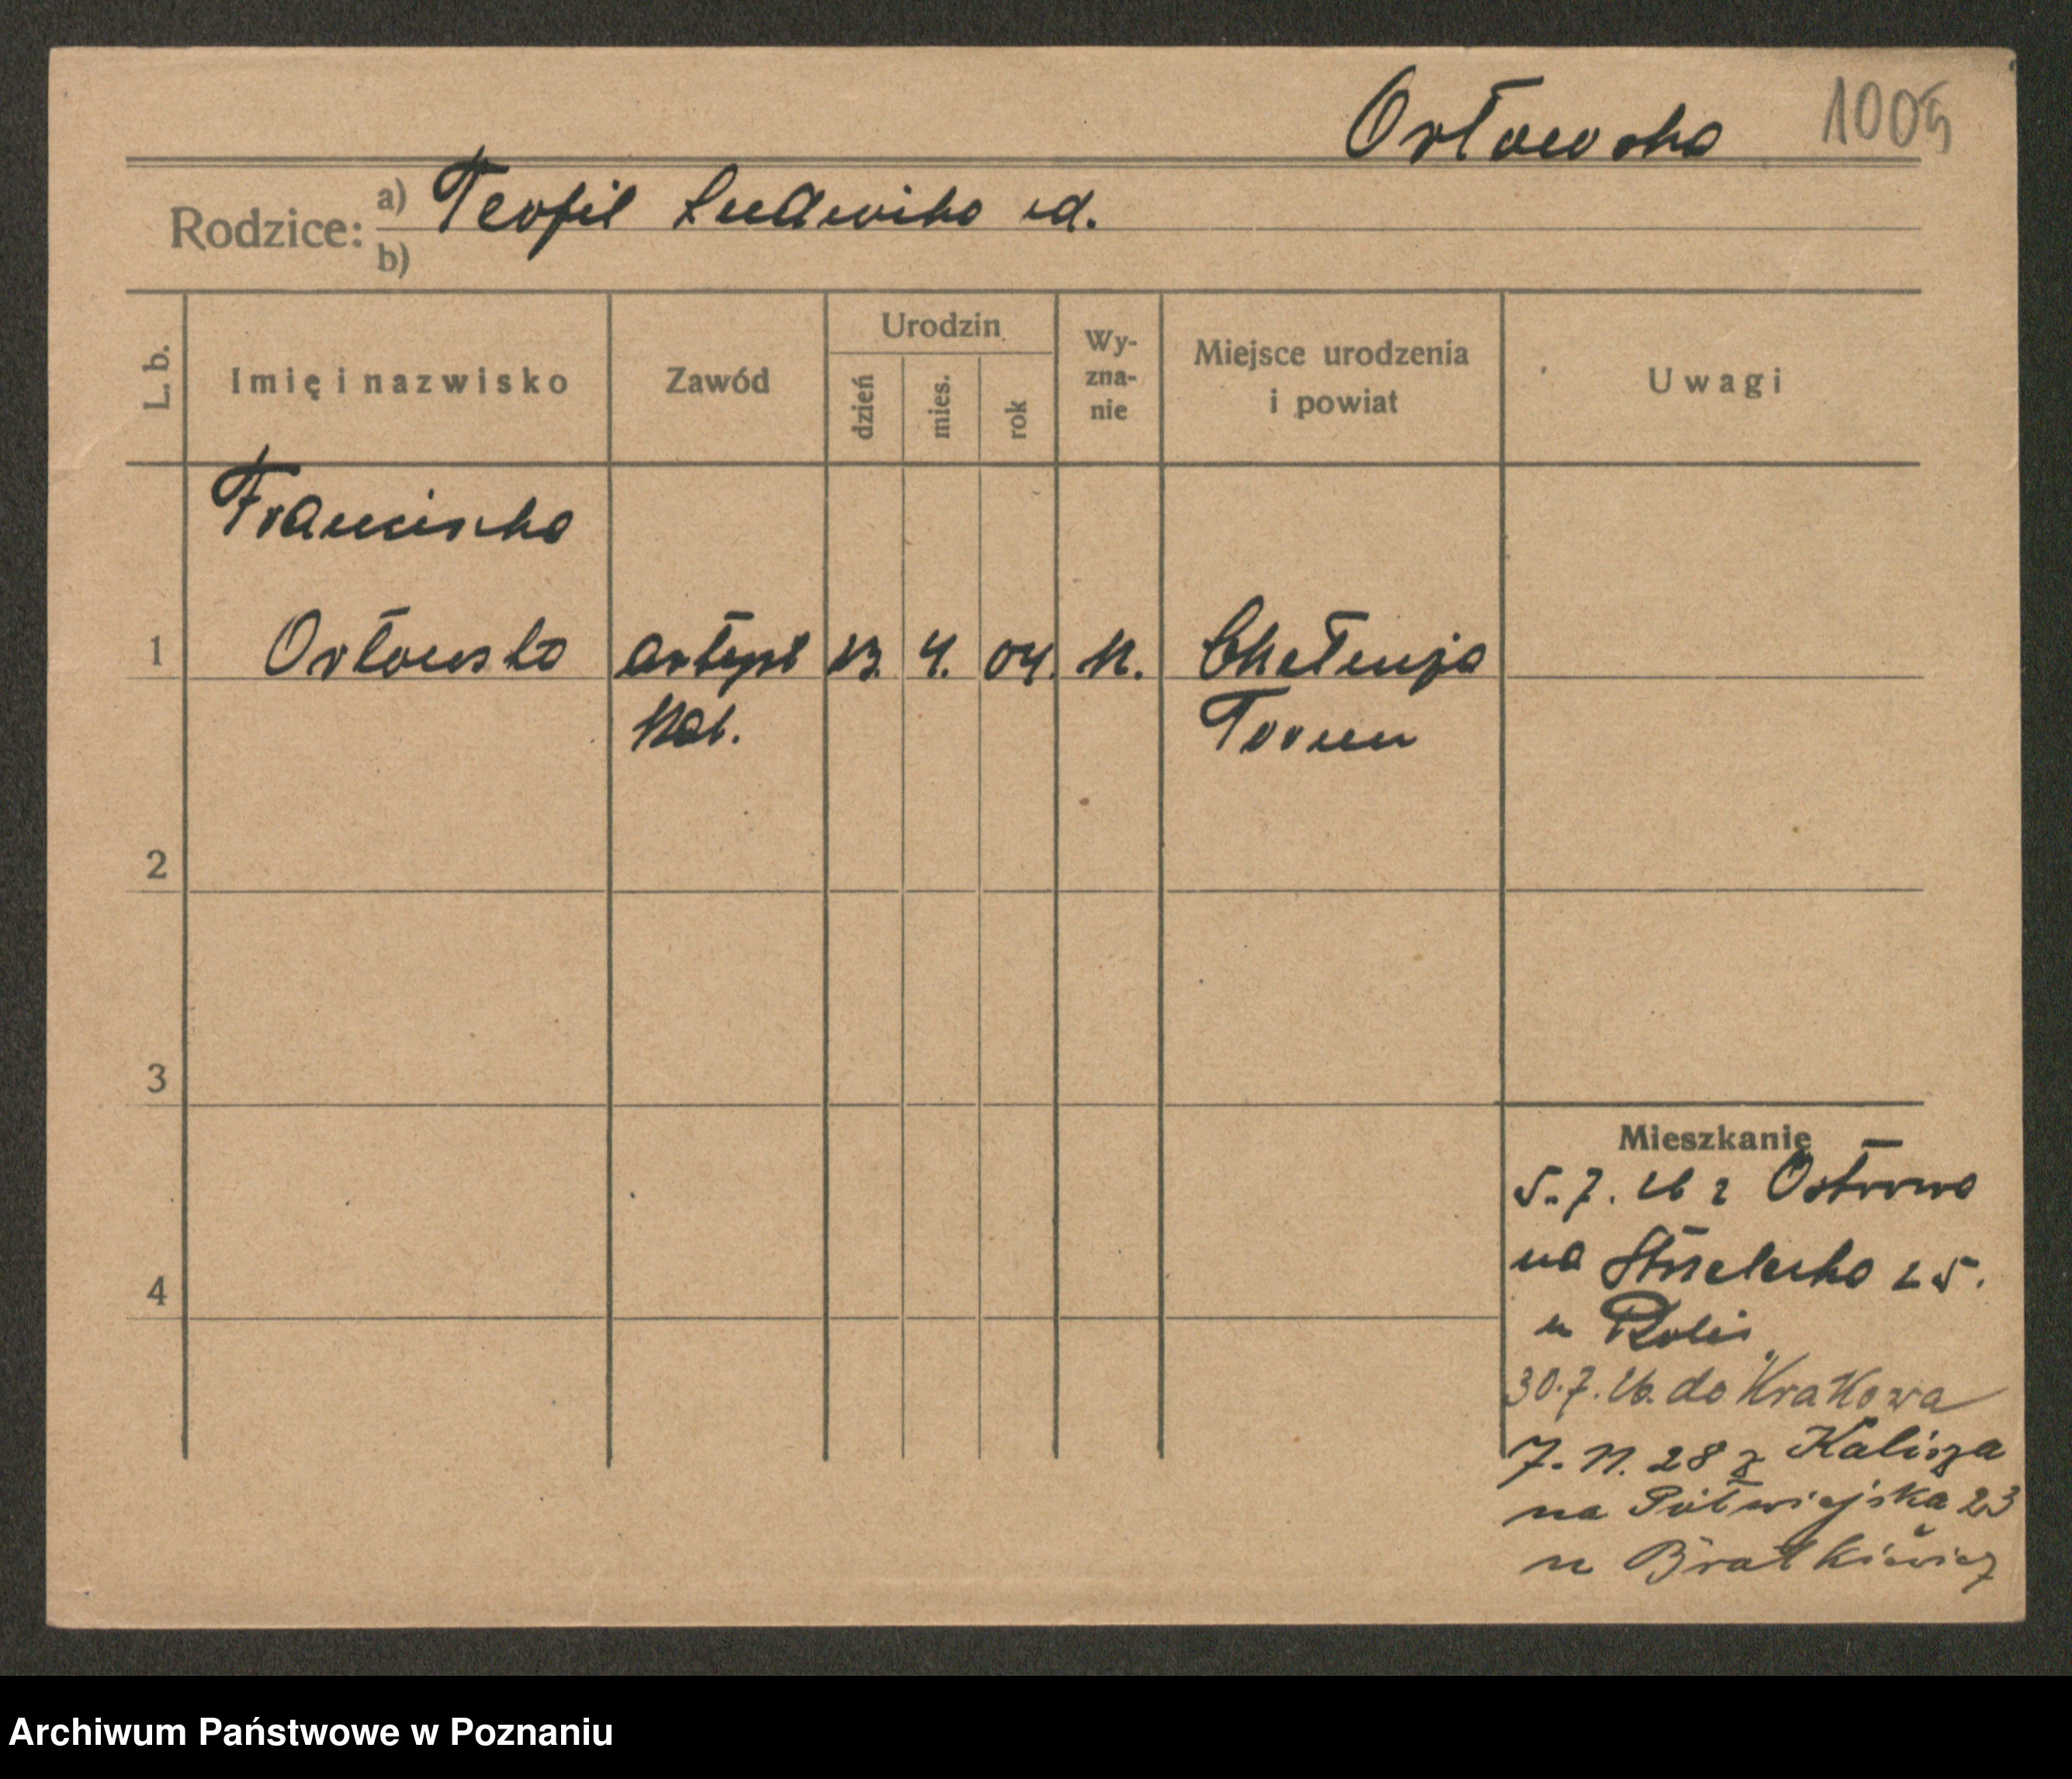 Orłowska 1005
Rodzice: a) Teofil Ludwika
b)
L. b. Imię i nazwisko Zawód Urodzin dzień mies. rok Wyznanie Miejsce urodzenia i powiat Uwagi
Franciszka
1 Orłowska artyst 13. 4. 04. Chełmża
Kab. Toruń
2
3
4
Mieszkanie
5.7.26 z Ostrowa
na Strzelecka 25.
u
30.7.26. do Krakowa
7.11.28 z Kalisza
na Półwiejska 23
u Bratkiewicz
Archiwum Państwowe w Poznaniu